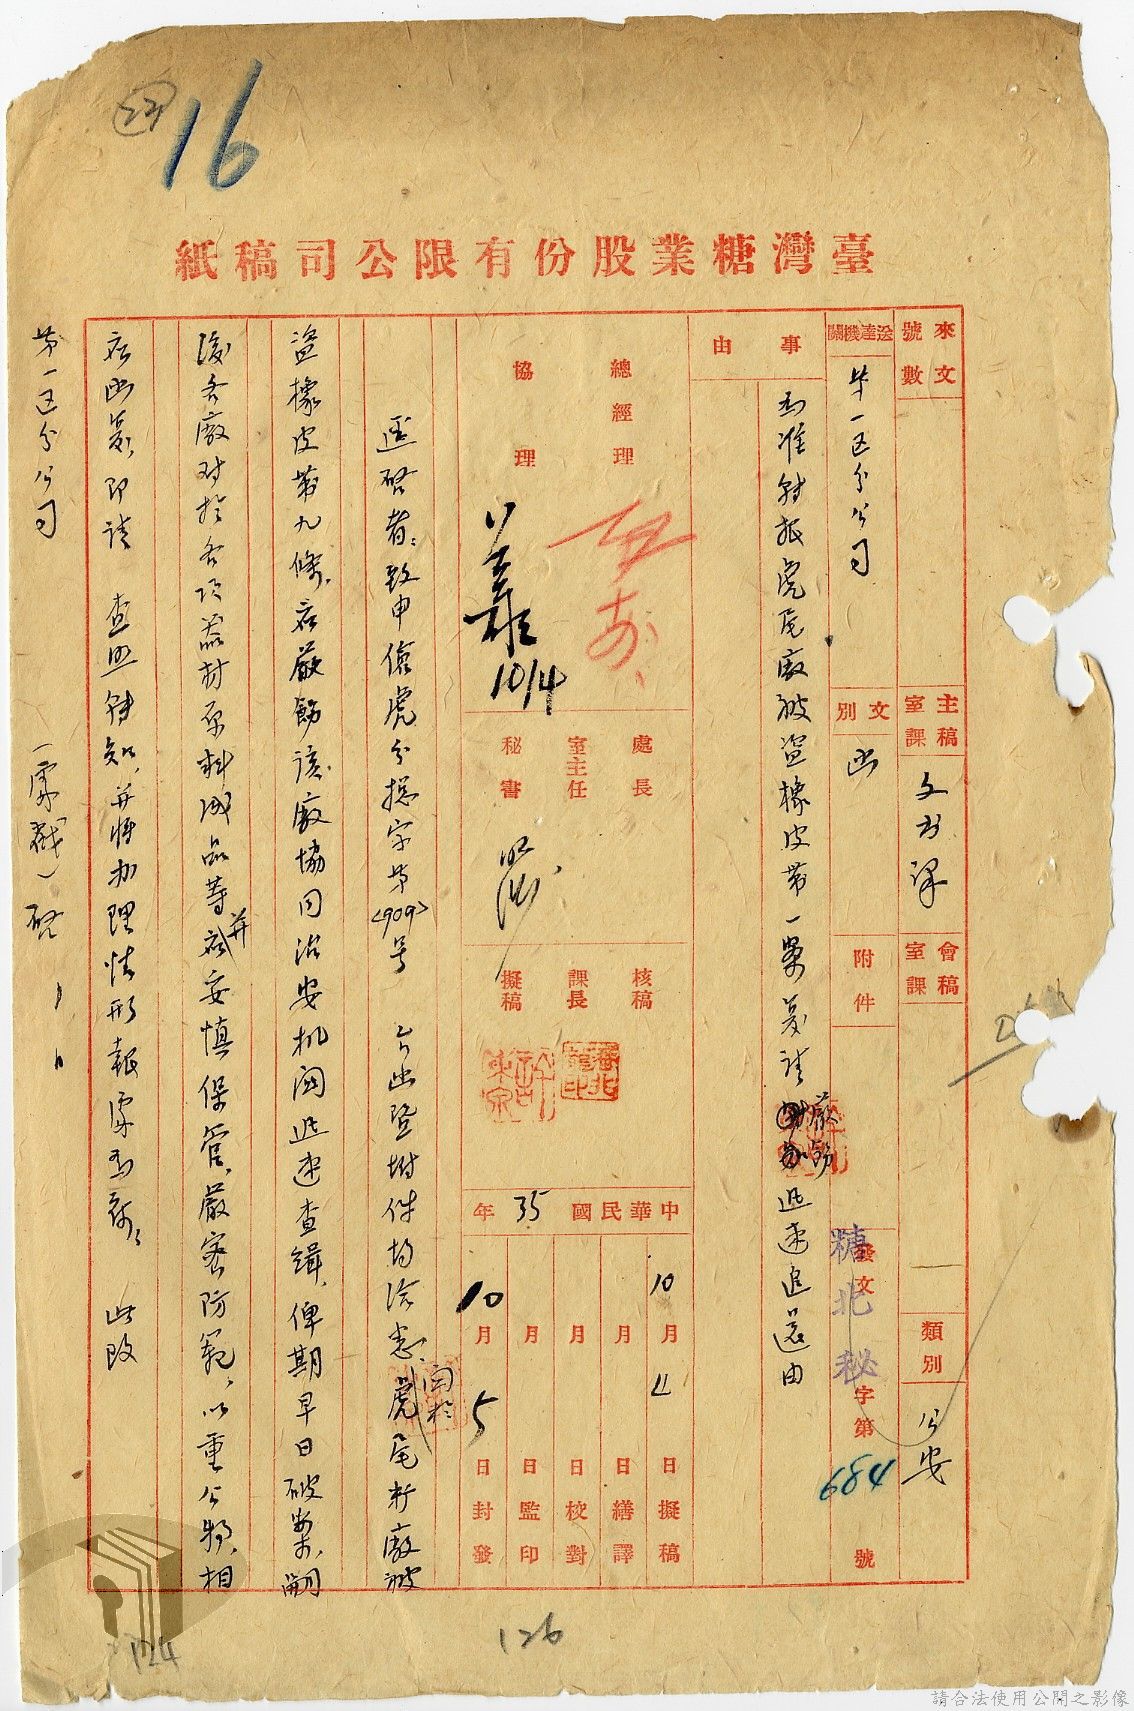 16
臺灣糖業股份有限公司稿紙
來文號數
主稿室課
文書課
會稿室課
類別
公安
送達機關
第一区分公司
文別
函
附件
發文
糖北秘
字第
684
號
事由
為准轉报虎尾廠被盜橡皮带一案复請嚴飭迅速追還由
總經理
協理
10/4
處長
室主任
秘書
核稿
課長
擬稿
中華民國35年
10月4日擬稿
月日繕譯
月日校對
月日監印
10月5日封發
逕啓者：致申儉虎分總字第<909>号
台函暨附件均洽悉、関於虎尾新廠被
盜橡皮带九條、应嚴飭該廠協同治安机関迅速查緝、俾期早日破案、嗣
後各廠对於各项器材原料成品等并应妥慎保管、嚴密防範、以重公物、相
应函复、即請
查照轉知、并將办理情形報處為荷、此致
第一区分公司
(處戳)啓
126
124
請合法使用公開之影像